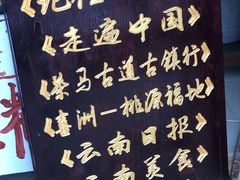 《走遍中国》
《茶马古道古镇行》
《喜洲一桃源福地》
《云南日报》
云南美食》